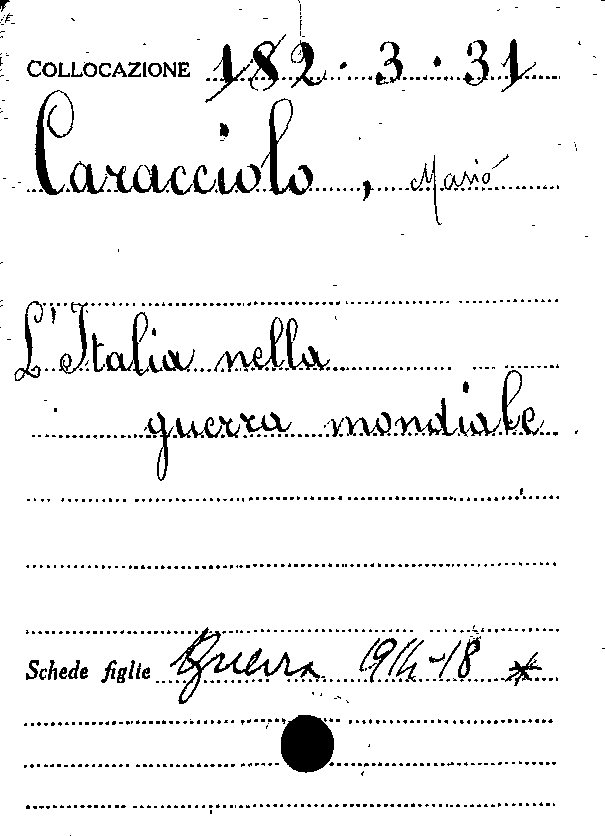 COLLOCAZIONE 182·3·31
Caracciolo, Mario
L'Italia nella
guerra mondiale.
Schede figlie Guerra 914-18 *